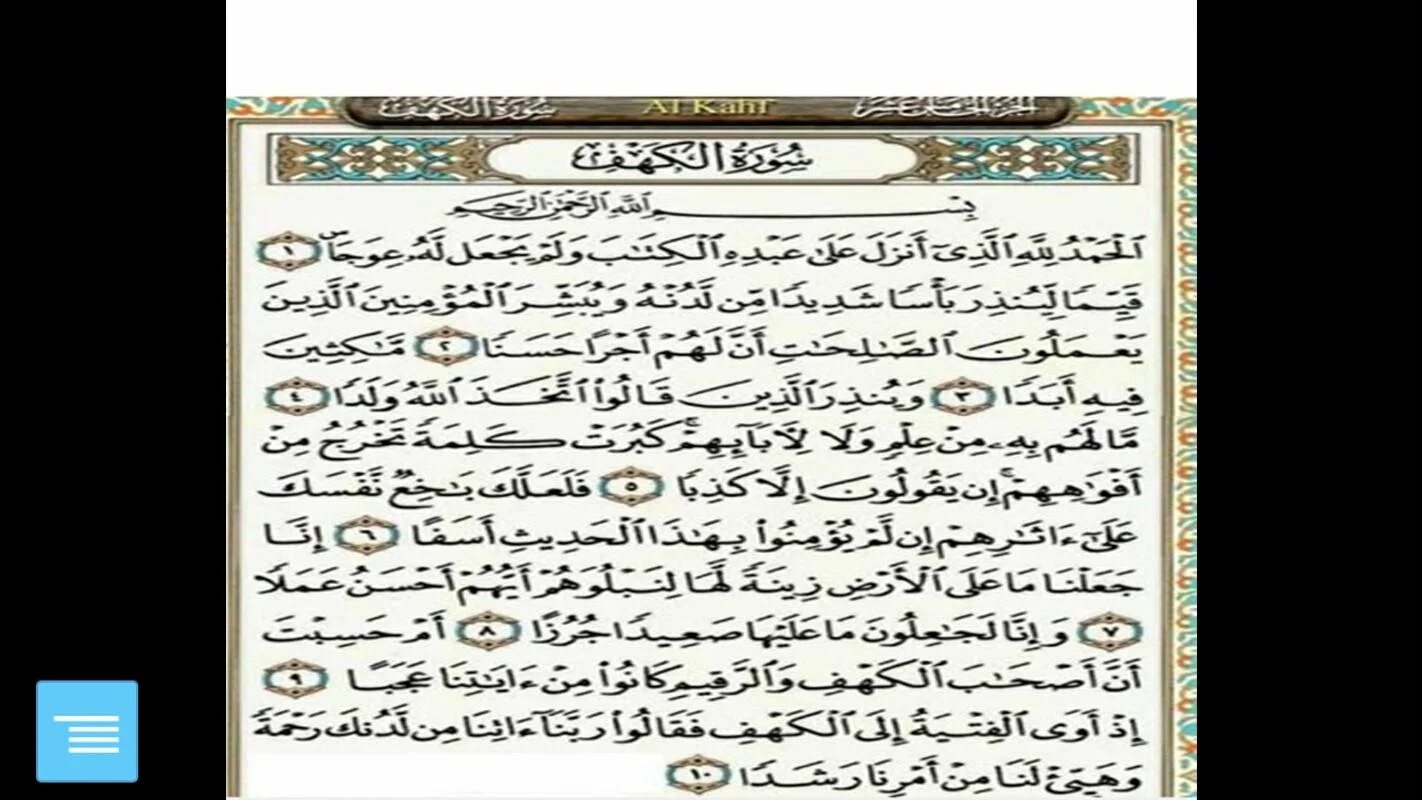 سُورَةُ الكَهْفِ Al Kahf الجزء الخامس عشر
سُورَةُ الكَهْفِ
بِسْمِ ٱللَّهِ ٱلرَّحْمَٰنِ ٱلرَّحِيمِ
ٱلْحَمْدُ لِلَّهِ ٱلَّذِىٓ أَنزَلَ عَلَىٰ عَبْدِهِ ٱلْكِتَٰبَ وَلَمْ يَجْعَل لَّهُۥ عِوَجَاۜ ١
قَيِّمًا لِّيُنذِرَ بَأْسًا شَدِيدًا مِّن لَّدُنْهُ وَيُبَشِّرَ ٱلْمُؤْمِنِينَ ٱلَّذِينَ
يَعْمَلُونَ ٱلصَّٰلِحَٰتِ أَنَّ لَهُمْ أَجْرًا حَسَنًا ٢ مَّٰكِثِينَ
فِيهِ أَبَدًا ٣ وَيُنذِرَ ٱلَّذِينَ قَالُوا۟ ٱتَّخَذَ ٱللَّهُ وَلَدًا ٤
مَّا لَهُم بِهِۦ مِنْ عِلْمٍ وَلَا لِـَٔابَآئِهِمْ ۚ كَبُرَتْ كَلِمَةً تَخْرُجُ مِنْ
أَفْوَٰهِهِمْ ۚ إِن يَقُولُونَ إِلَّا كَذِبًا ٥ فَلَعَلَّكَ بَٰخِعٌ نَّفْسَكَ
عَلَىٰٓ ءَاثَٰرِهِمْ إِن لَّمْ يُؤْمِنُوا۟ بِهَٰذَا ٱلْحَدِيثِ أَسَفًا ٦ إِنَّا
جَعَلْنَا مَا عَلَى ٱلْأَرْضِ زِينَةً لَّهَا لِنَبْلُوَهُمْ أَيُّهُمْ أَحْسَنُ عَمَلًا
٧ وَإِنَّا لَجَٰعِلُونَ مَا عَلَيْهَا صَعِيدًا جُرُزًا ٨ أَمْ حَسِبْتَ
أَنَّ أَصْحَٰبَ ٱلْكَهْفِ وَٱلرَّقِيمِ كَانُوا۟ مِنْ ءَايَٰتِنَا عَجَبًا ٩
إِذْ أَوَى ٱلْفِتْيَةُ إِلَى ٱلْكَهْفِ فَقَالُوا۟ رَبَّنَآ ءَاتِنَا مِن لَّدُنكَ رَحْمَةً
وَهَيِّئْ لَنَا مِنْ أَمْرِنَا رَشَدًا ١٠